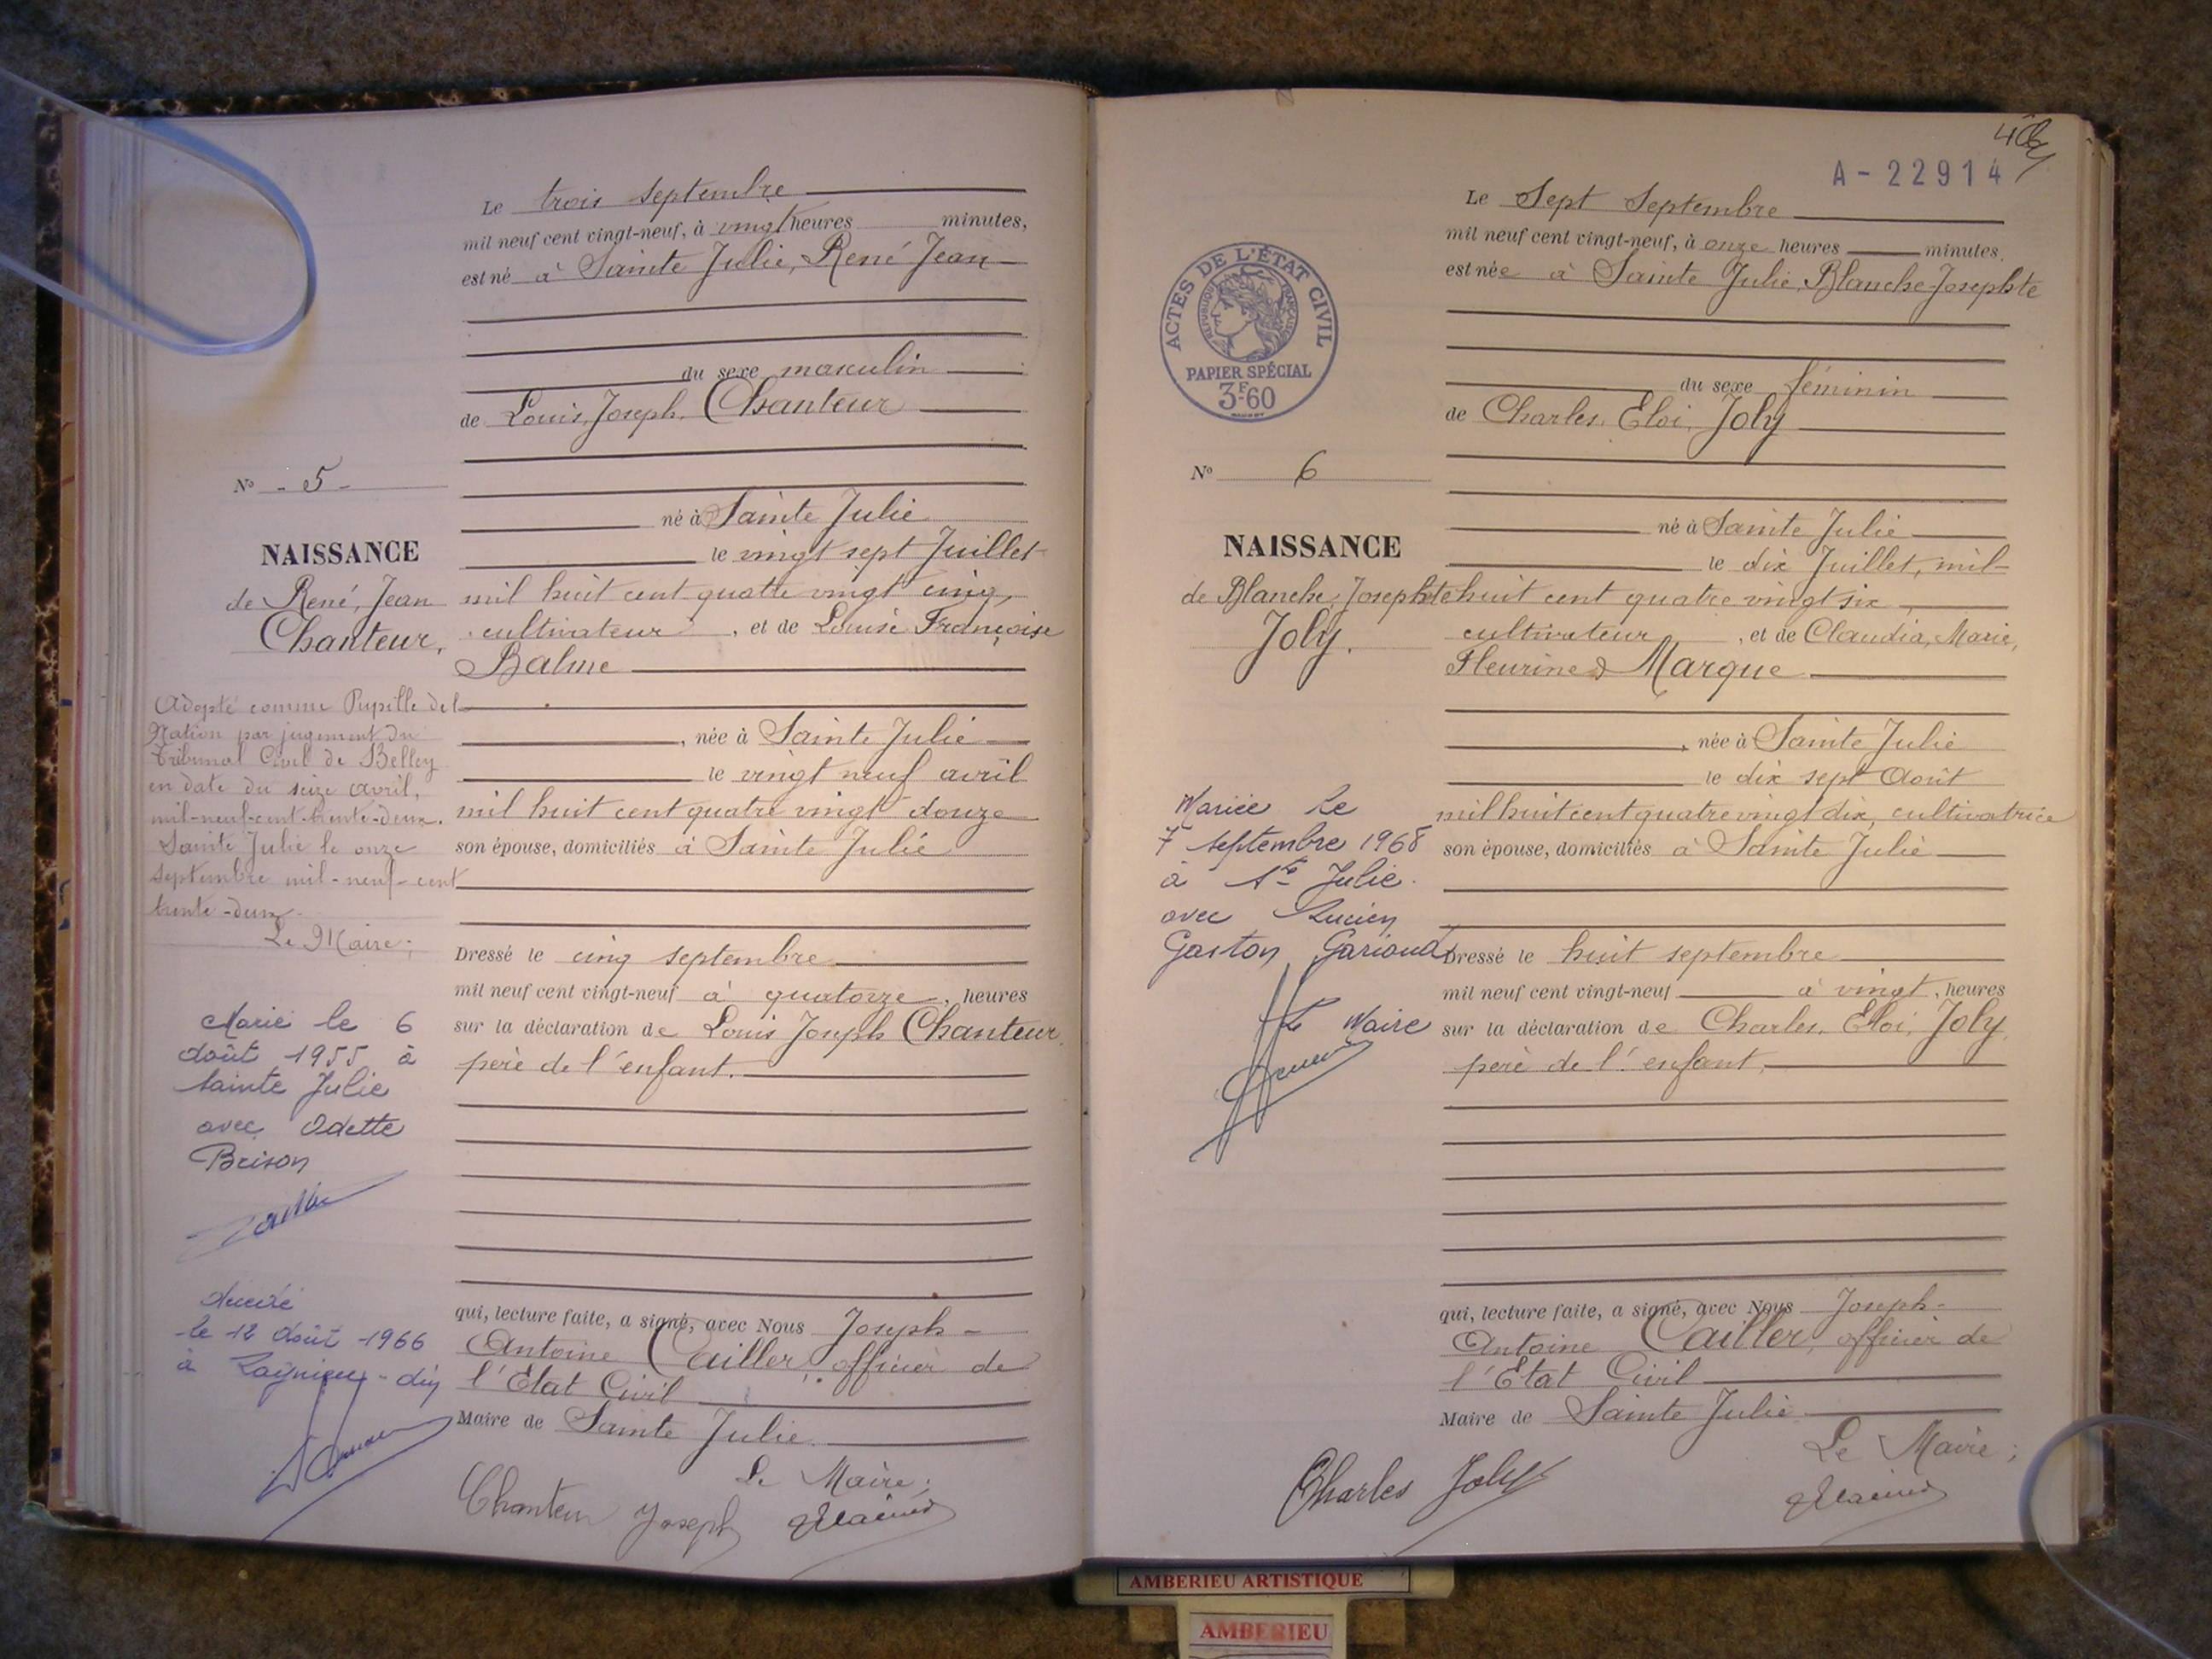 Le trois septembre
mil neuf cent vingt-neuf, à vingt heures minutes,
est né à Sainte Julie, René Jean
du sexe masculin
de Louis, Joseph, Chanteur
né à Sainte Julie
le vingt sept Juillet
mil huit cent quatre vingt cinq,
cultivateur, et de Louise Françoise
Balme
, née à Sainte Julie
le vingt neuf avril
mil huit cent quatre vingt douze
son épouse, domiciliés à Sainte Julie
Dressé le cinq septembre
mil neuf cent vingt-neuf à quatorze, heures
sur la déclaration de Louis Joseph Chanteur,
père de l'enfant.
qui, lecture faite, a signé, avec Nous Joseph-
Antoine Cailler, officier de
l'Etat Civil
Maire de Sainte Julie.
Le Maire;
Chanteur Joseph
No - 5 -
NAISSANCE
de René, Jean
Chanteur,
Adopté comme Pupille de la
Nation par jugement du
Tribunal Civil de Belley
en date du seize avril,
mil-neuf-cent-trente-deux.
Sainte Julie le onze
septembre mil-neuf-cent
trente-deux.
Le Maire;
Marié le 6
Août 1955 à
Sainte Julie
avec Odette
Brison
décédé
le 12 Août 1966
à Lagnieu
40
A-22914
Le Sept Septembre
mil neuf cent vingt-neuf, à onze heures minutes.
est née à Sainte Julie, Blanche Josephte
du sexe féminin
de Charles, Eloi, Joly
né à Sainte Julie
le dix Juillet, mil-
huit cent quatre vingt six,
cultivateur, et de Claudia, Marie,
Fleurine Marque
, née à Sainte Julie
le dix sept Août
mil huit cent quatre vingt dix, cultivatrice
son épouse, domiciliés à Sainte Julie
Dressé le huit septembre
mil neuf cent vingt-neuf à vingt, heures
sur la déclaration de Charles, Eloi, Joly,
père de l'enfant,
qui, lecture faite, a signé, avec Nous Joseph-
Antoine Cailler, officier de
l'Etat Civil
Maire de Sainte Julie
Le Maire;
Charles Joly
ACTES DE L'ÉTAT CIVIL
RÉPUBLIQUE FRANÇAISE
PAPIER SPÉCIAL
3F60
No 6
NAISSANCE
de Blanche, Josephte
Joly.
Mariée le
7 septembre 1968
à Ste Julie.
avec Lucien
Gaston Garioud
Le Maire
AMBERIEU ARTISTIQUE
AMBERIEU